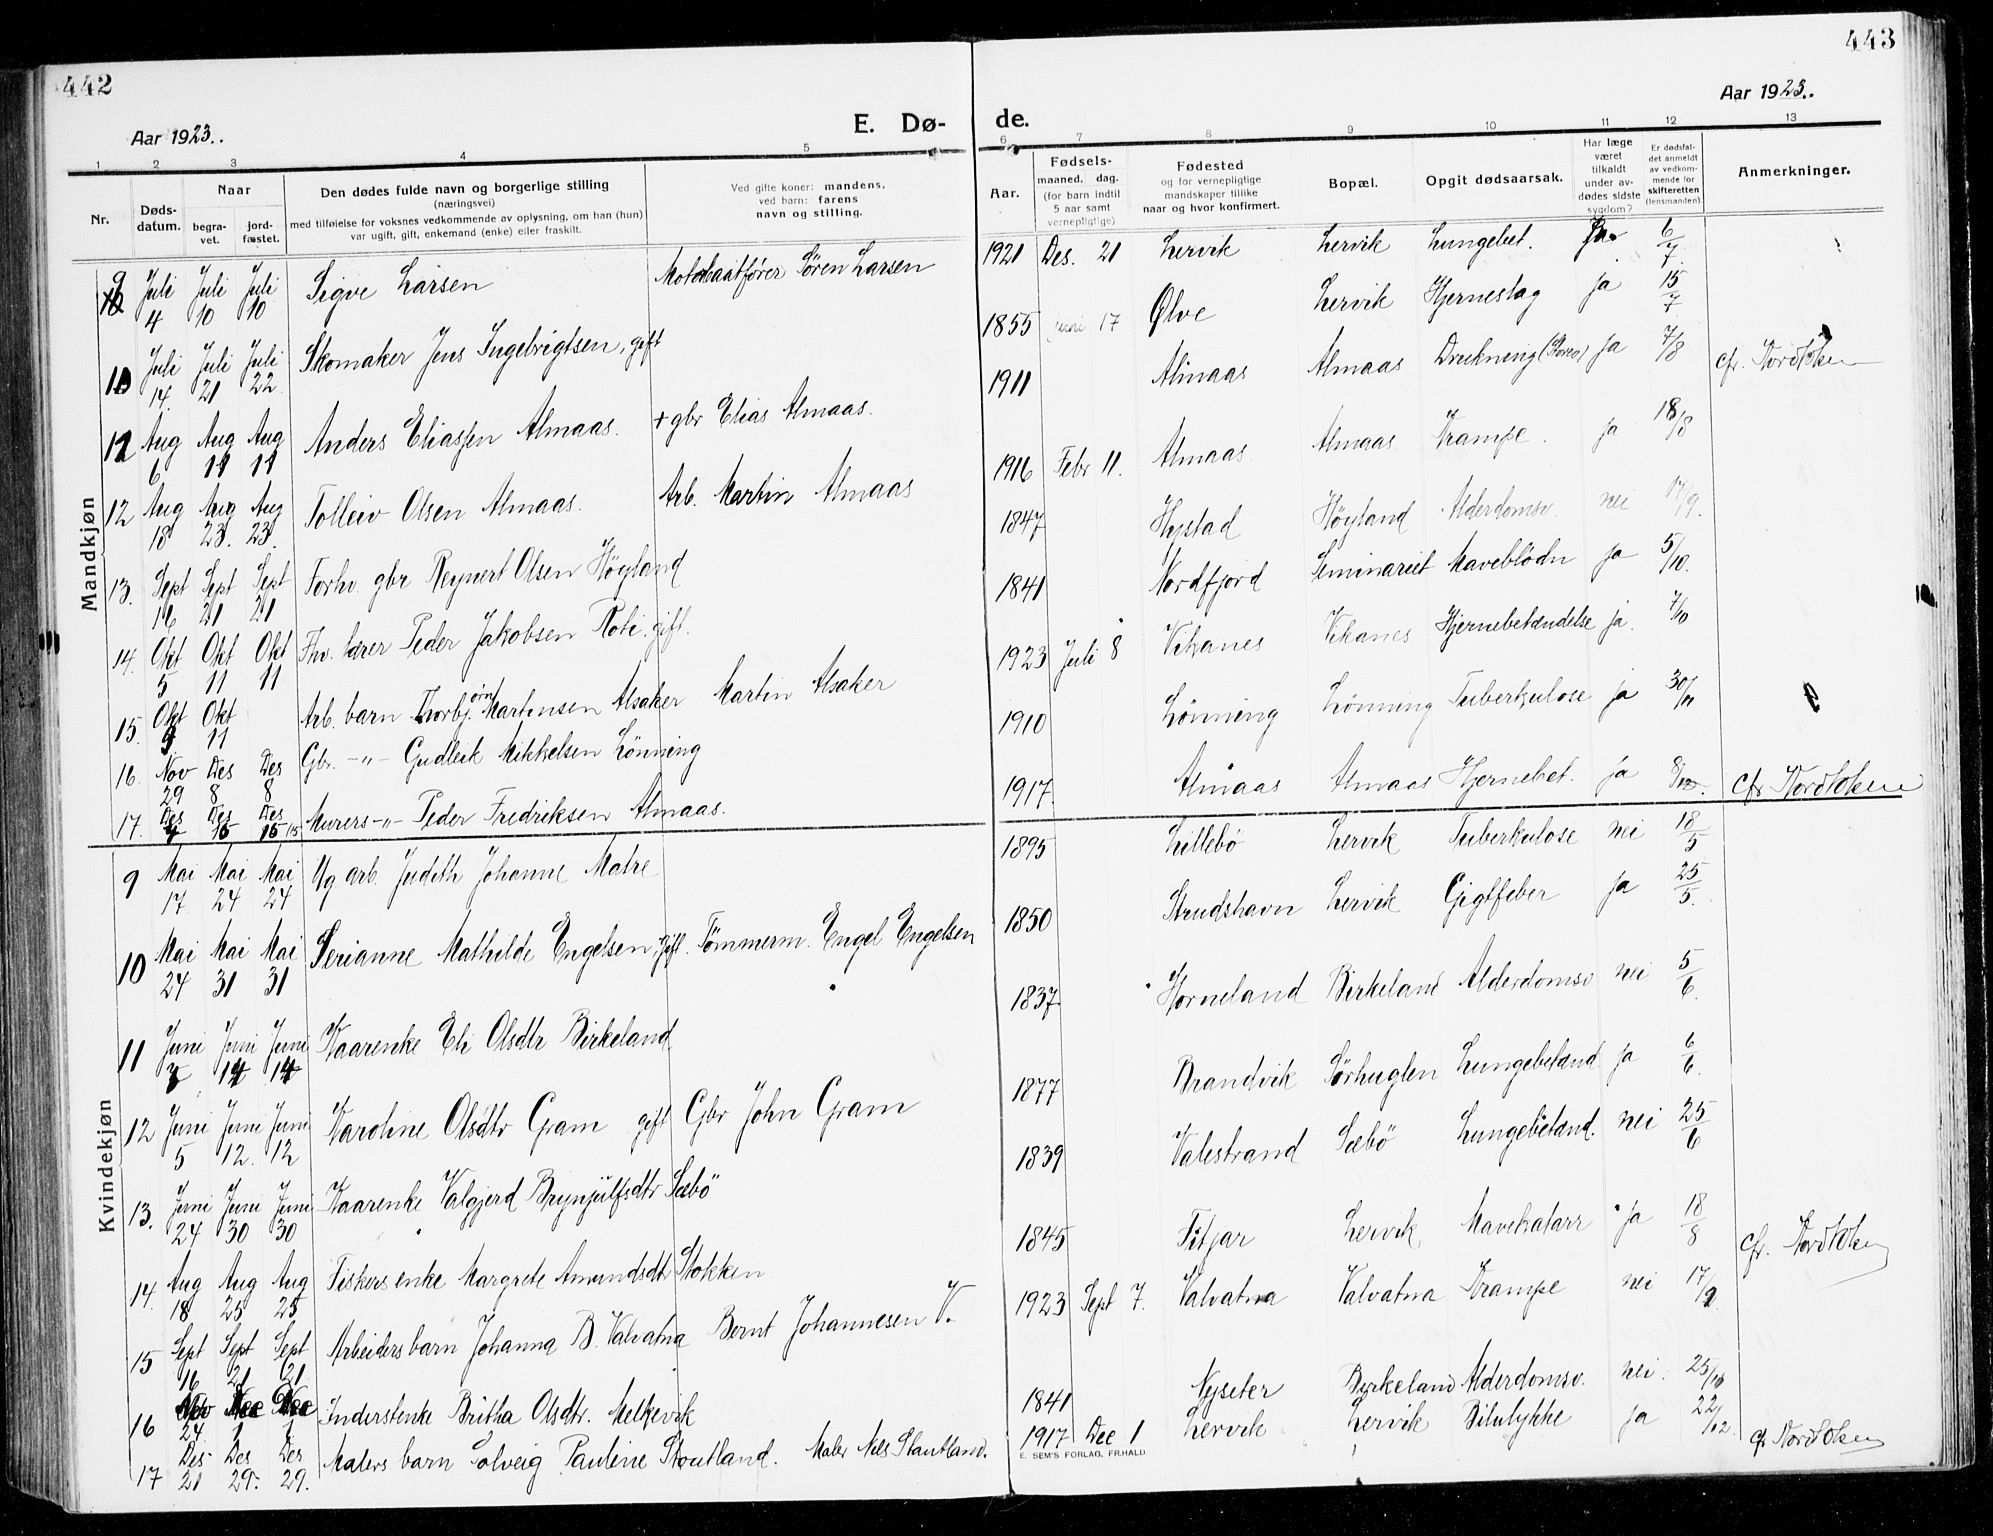 442
443
Aar 1923.
Aar 1923.
E. Dø- de.
1 2 3 4 5 6 7 8 9 10 11 12 13
Nr.
Døds-datum.
Naar
begra-vet.
jord-fæstet.
Den dødes fulde navn og borgerlige stilling
(næringsvei)
med tilføielse for voksnes vedkommende av oplysning, om han (hun)
var ugift, gift, enkemand (enke) eller fraskilt.
Ved gifte koner: mandens,
ved barn: farens
navn og stilling.
Aar.
Fødsels-
maaned. dag.
(for barn indtil
5 aar samt
vernepligtige).
Fødested
og for vernepligtige
mandskaper tillike
naar og hvor konfirmert.
Bopæl.
Opgit dødsaarsak.
Har læge
været
tilkaldt
under av-
dødes sidste
sygdom?
Er dødsfal-
det anmeldt
av vedkom-
mende for
skifteretten
(lensmanden).
Anmerkninger.
Mandkjøn
9 Juli 4 Juli 10 Juli 10 Sigve Larsen Motorbaatfører Sören Larsen 1921 Des. 21 Lervik Lervik Lungebet. Ja 6/7
10 Juli 14. Juli 21 Juli 22 Skomaker Jens Ingebrigtsen, gift 1855 juni 17 Ølve Lervik Hjerneslag ja 15/7
11 Aug 6 Aug 11 Aug 11 Anders Eliassen Almaas. + gbr Elias Almaas. 1911 Almaas Almaas Drukning ja 7/8 cfr. Nordt Olsen
12 Aug 18 Aug 23. Aug 23. Tolleiv Olsen Almaas. Arb. Martin Almaas 1916 Febr 11. Almaas Almaas Krampe. ja 18/8
13. Sept 16 Sept 21 Sept 21 Forhv. gbr Reynert Olsen Höyland 1847 Hystad Höyland Alderdomsv. nei 17/9.
14. Okt 5 Okt 11 Okt 11 Fhv. lærer Peder Jakobsen Roti, gift. 1841 Nordfjord Seminariet Maveblödn ja 5/10.
15. Okt Okt 11 Arb. barn Thorbjörn Martinsen Alsaker Martin Alsaker 1923 Juli 8 Vikanes Vikanes Hjernebetændelse ja. 7/10
16. Nov 29 Des 8 Des 8 Gbr. -"- Gudleik Mikkelsen Lönning 1910 Lönning Lönning Tuberkulose ja 30/11
17. Des Des 15 Des 15 Murers -"- Peder Fredriksen Almaas. 1917. Almaas Almaas Hjernebet. ja 8/12. cfr Nordt Olsen
Kvindekjøn
9 Mai 17. Mai 24 Mai 24 Ug arb. Judith Johanne Matre 1895 Lillebö Lervik Tuberkulose nei 18/5
10 Mai 24 Mai 31 Mai 31 Serianne Mathilde Engelsen, gift. Tömmerm. Engel Engelsen 1850 Strudshavn Lervik Gigtfeber ja 25/5.
11 Juni Juni 14 Juni 14 Kaarenke Eli Olsdtr Birkeland 1837 Horneland Birkeland Alderdomsv nei 5/6.
12 Juni 5 Juni 12. Juni 12 Karoline Olsdtr Gram gift Gbr John Gram 1877 Brandvik Sörhuglen Lungebetænd. ja 6/6.
13. Juni 24 Juni 30 Juni 30 Kaarenke Valgjerd Brynjulfsdtr Sæbö 1839 Valestrand Sæbö Lungebetænd. nei 25/6
14. Aug 18 Aug 25 Aug 25 Fiskers enke Margrete Amundsdtr Stokken 1845 Fitjar Lervik Mavekatarr ja 18/8 cfr. Nordt Olsen
15 Sept 16 Sept 21 Sept 21. Arbeiders barn Johanna B. Valvatna Bernt Johannesen V. 1923 Sept 7. Valvatna Valvatna Krampe nei 17/9
16 Nov 24. Dec 1 Dec 1 Inderstenke Britha Olsdtr. Melkevik 1841 Nysæter Birkeland Alderdomsv. nei. 25/10
17 Des 21 Des 29. Des 29. Malers barn Solveig Pauline Stautland. Maler Nils Stautland. 1917 Dec 1 Lervik Lervik Bilulykke ja 22/12 cfr Nordt Olsen
E. SEM'S FORLAG, FR.HALD.